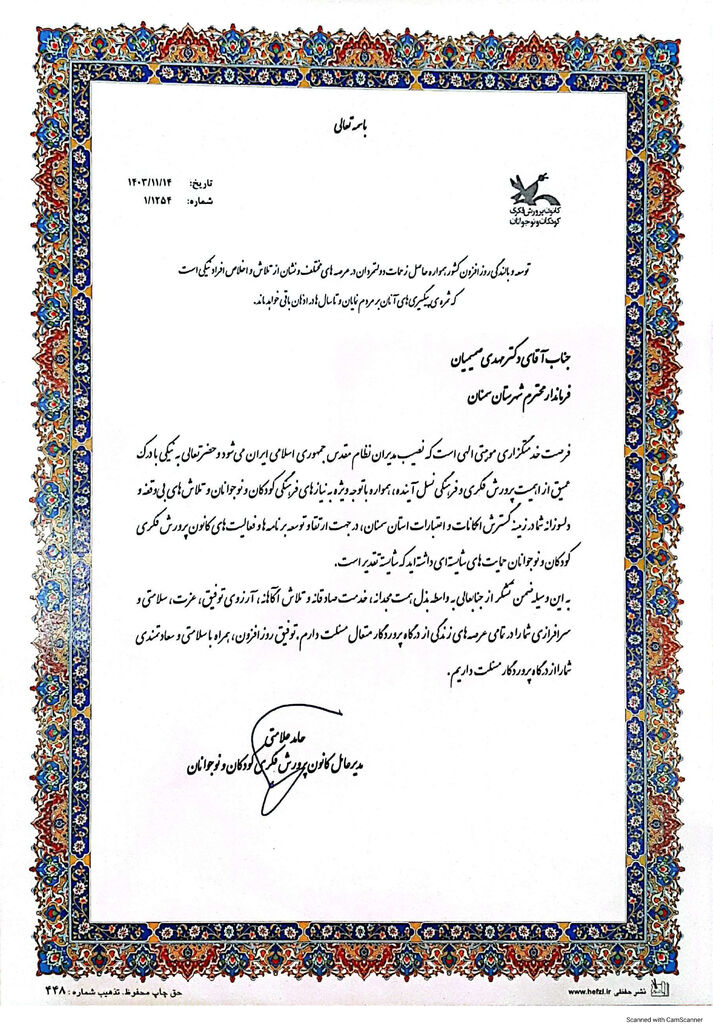 باسمه تعالی
تاریخ: ۱۴۰۳/۱۱/۱۴
شماره: ۱/۱۲۵۴
کانون پرورش فکری
کودکان و نوجوانان
توسعه و بالندگی روز افزون کشور همواره حاصل زحمات دولتمردان در عرصه های مختلف و نشان از تلاش و اخلاص افراد نیکی است
که ثمره ی پیگیری های آنان بر مردم نمایان و تا سال ها در اذهان باقی خواهد ماند.
جناب آقای دکتر مهدی صمیمیان
فرماندار محترم شهرستان سمنان
فرصت خدمتگزاری موهبتی الهی است که نصیب مدیران نظام مقدس جمهوری اسلامی ایران می شود و حضرتعالی به نیکی با درک
عمیق از اهمیت پرورش فکری و فرهنگی نسل آینده، همواره با توجه ویژه به نیازهای فرهنگی کودکان و نوجوانان و تلاش های بی دقفه و
دلسوزانه شما در زمینه گسترش امکانات و اعتبارات استان سمنان، در جهت ارتقا و توسعه برنامه ها و فعالیت های کانون پرورش فکری
کودکان و نوجوانان حمایت های شایسته ای داشته اید که شایسته تقدیر است.
به این وسیله ضمن تشکر از جنابعالی به واسطه بذل همت مجدانه، خدمت صادقانه و تلاش آگاهانه، آرزوی توفیق، عزت، سلامتی و
سرافرازی شما را در تمامی عرصه های زندگی از درگاه پروردگار متعال مسئلت دارم. توفیق روز افزون، همراه با سلامتی و سعادتمندی
شما را از درگاه پروردگار مسئلت داریم.
حامد علامتی
مدیرعامل کانون پرورش فکری کودکان و نوجوانان
نشر حفظی www.hefzi.ir
حق چاپ محفوظ. تذهیب شماره: ۴۴۸
Scanned with CamScanner